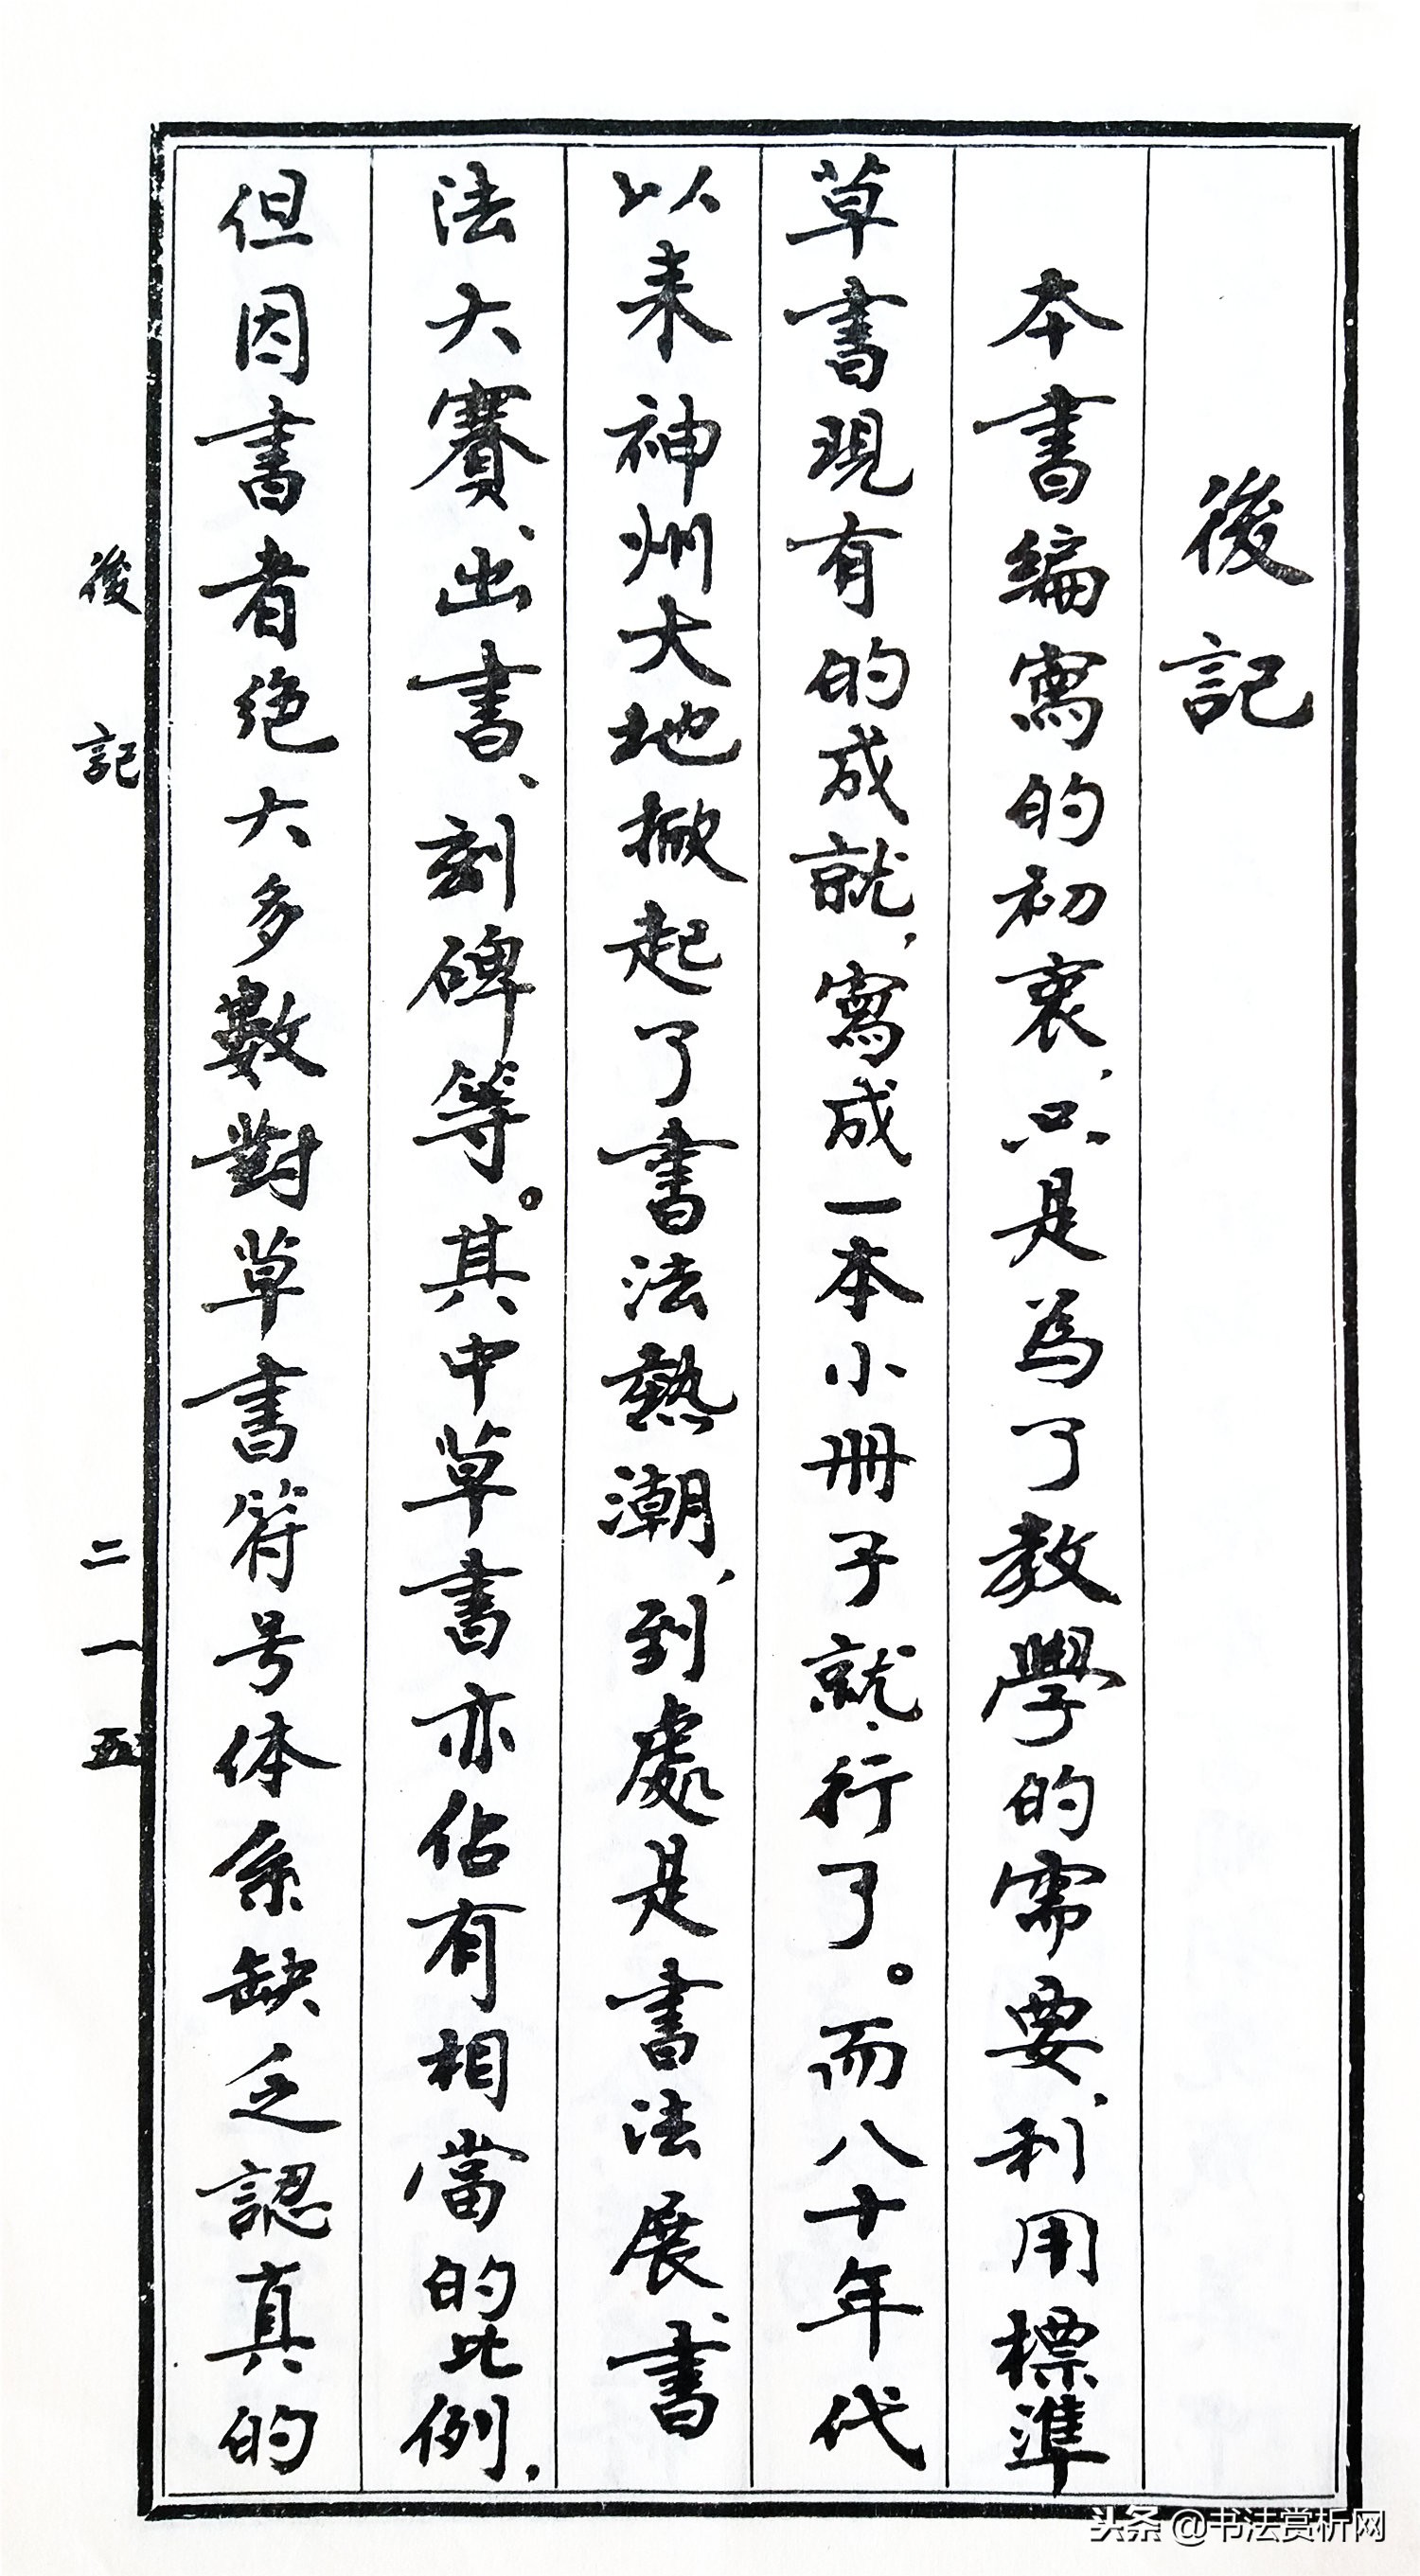 後記
本書編寫的初衷，只是為了教學的需要，利用標準
草書現有的成就，寫成一本小冊子就行了。而八十年代
以来神州大地掀起了書法熱潮，到處是書法展、書
法大賽、出書、刻碑等。其中草書亦佔有相當的比例，
但因書者绝大多數對草書符号体系缺乏認真的
後記
二一五
头条 @书法赏析网